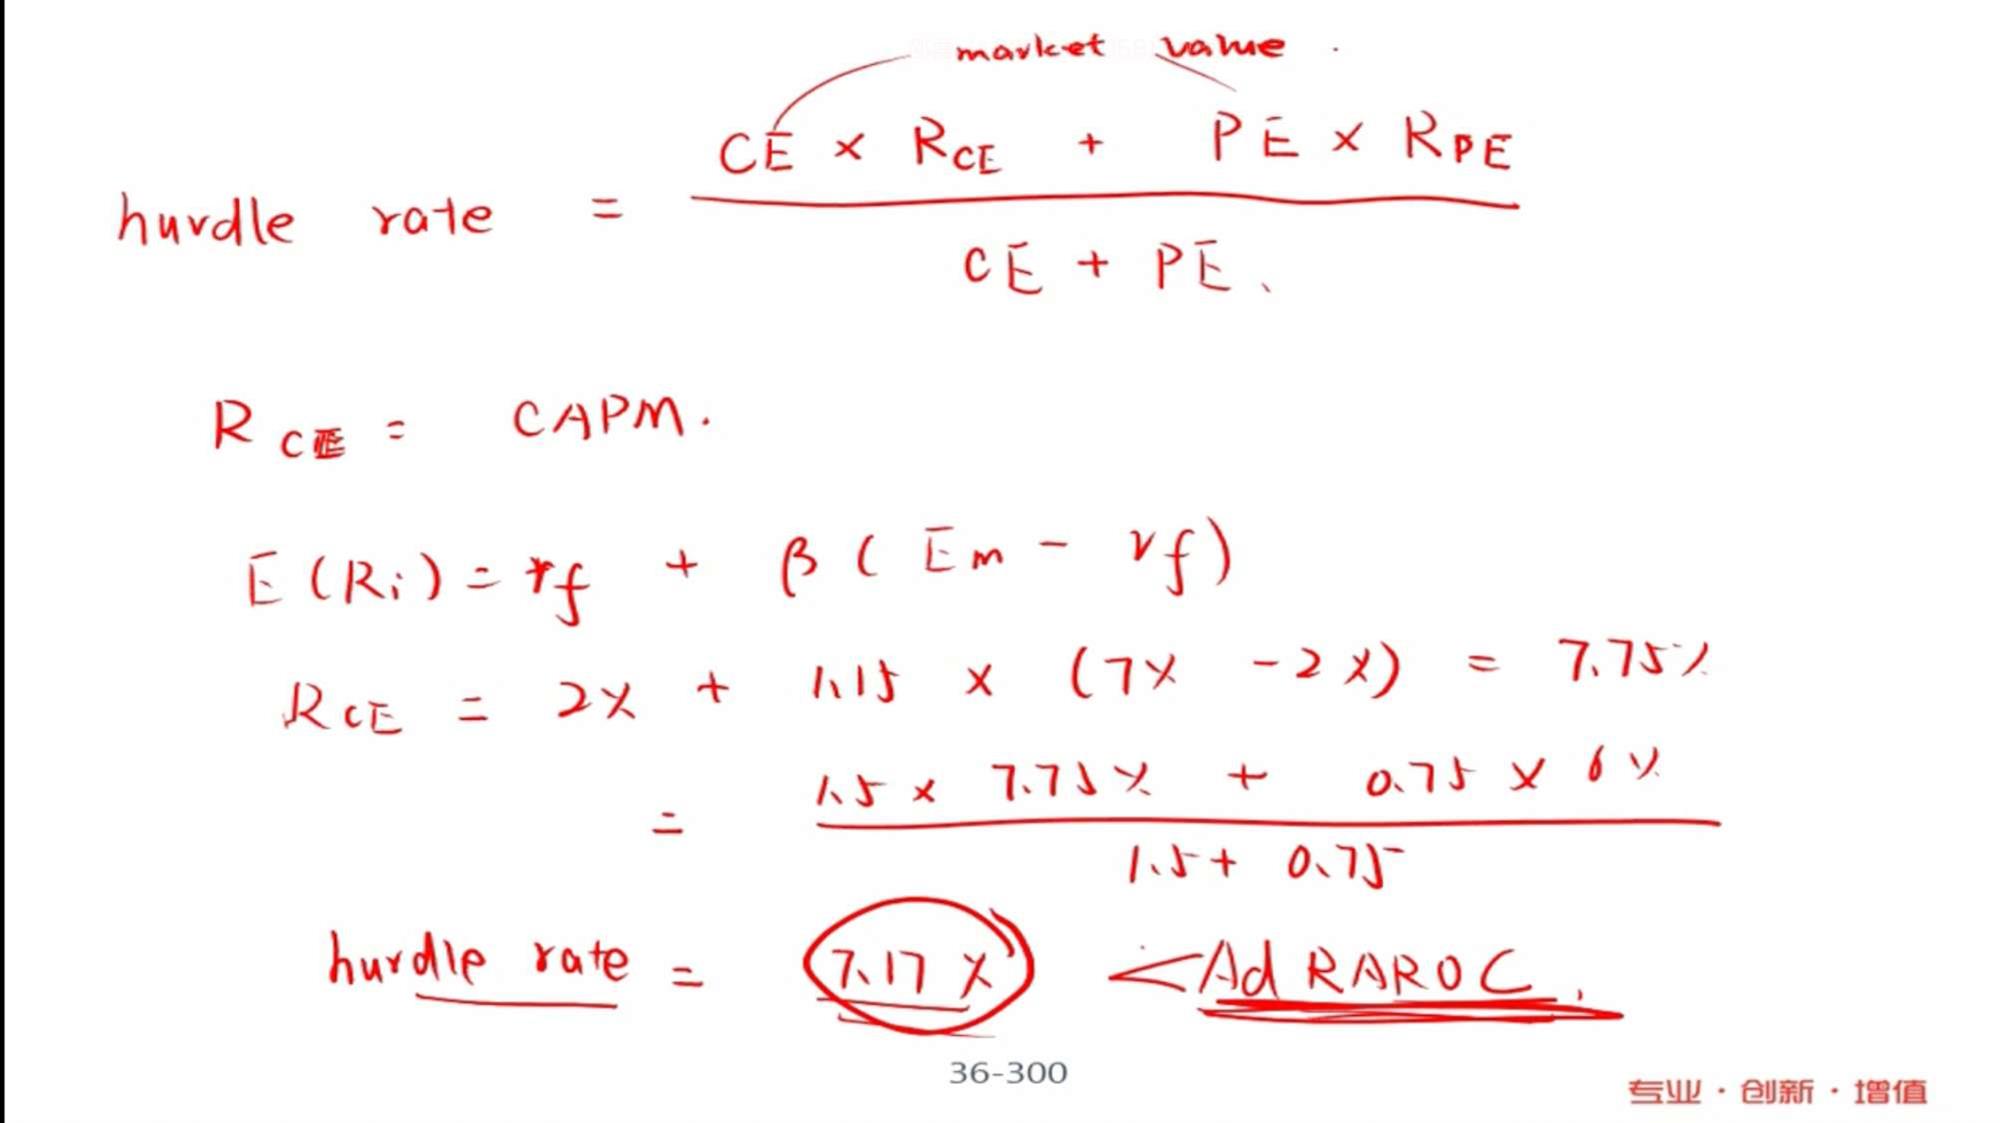 market value
CE × R_CE + PE × R_PE
hurdle rate =
CE + PE
R_CE = CAPM.
E(Ri) = rf + β(Em - rf)
R_CE = 2% + 1.15 × (7% - 2%) = 7.75%
= 1.5 × 7.75% + 0.75 × 6%
1.5 + 0.75
hurdle rate = 7.17% < Ad RAROC.
36-300
专业·创新·增值